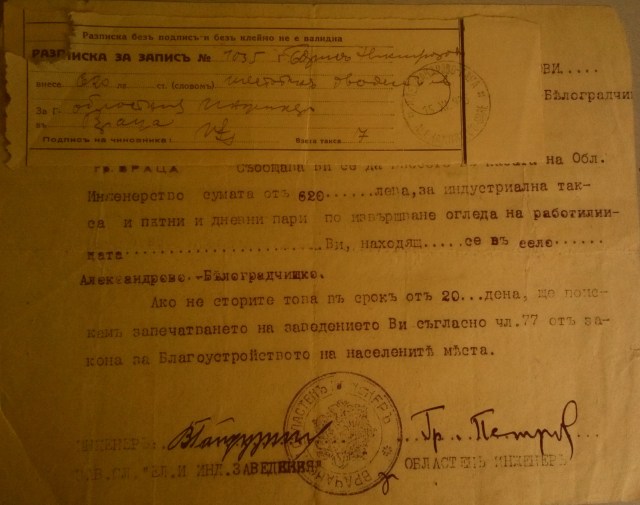 Разписка безъ подпись и безъ клеймо не е валидна
РАЗПИСКА ЗА ЗАПИСЪ № 1035
внесе 620 лв. ст. (словомъ)
За Г
въ Враца
Подпись на чиновника: Взета такса 7
ВИ.....
Бѣлоградчи
гр. ВРАЦА Съобщава Ви се да внесете въ касата на Обл.
Инженерство сумата отъ 620......лева, за индустриална так-
са и пѫтни и дневни пари по извършване огледа на работилни-
цата...................Ви, находящ.....се въ село......
Александрово -Бѣлоградчишко.
Ако не сторите това въ срокъ отъ 20...дена, ще поис-
камъ запечатването на заведението Ви съгласно чл.77 отъ за-
кона за Благоустройството на населенитѣ мѣста.
ИНЖЕНЕРЪ: ...Гр. Петров
ЗАВ.СЛ."ЕЛ.И ИНД.ЗАВЕДЕНИЯ" ОБЛАСТЕНЪ ИНЖЕНЕРЪ